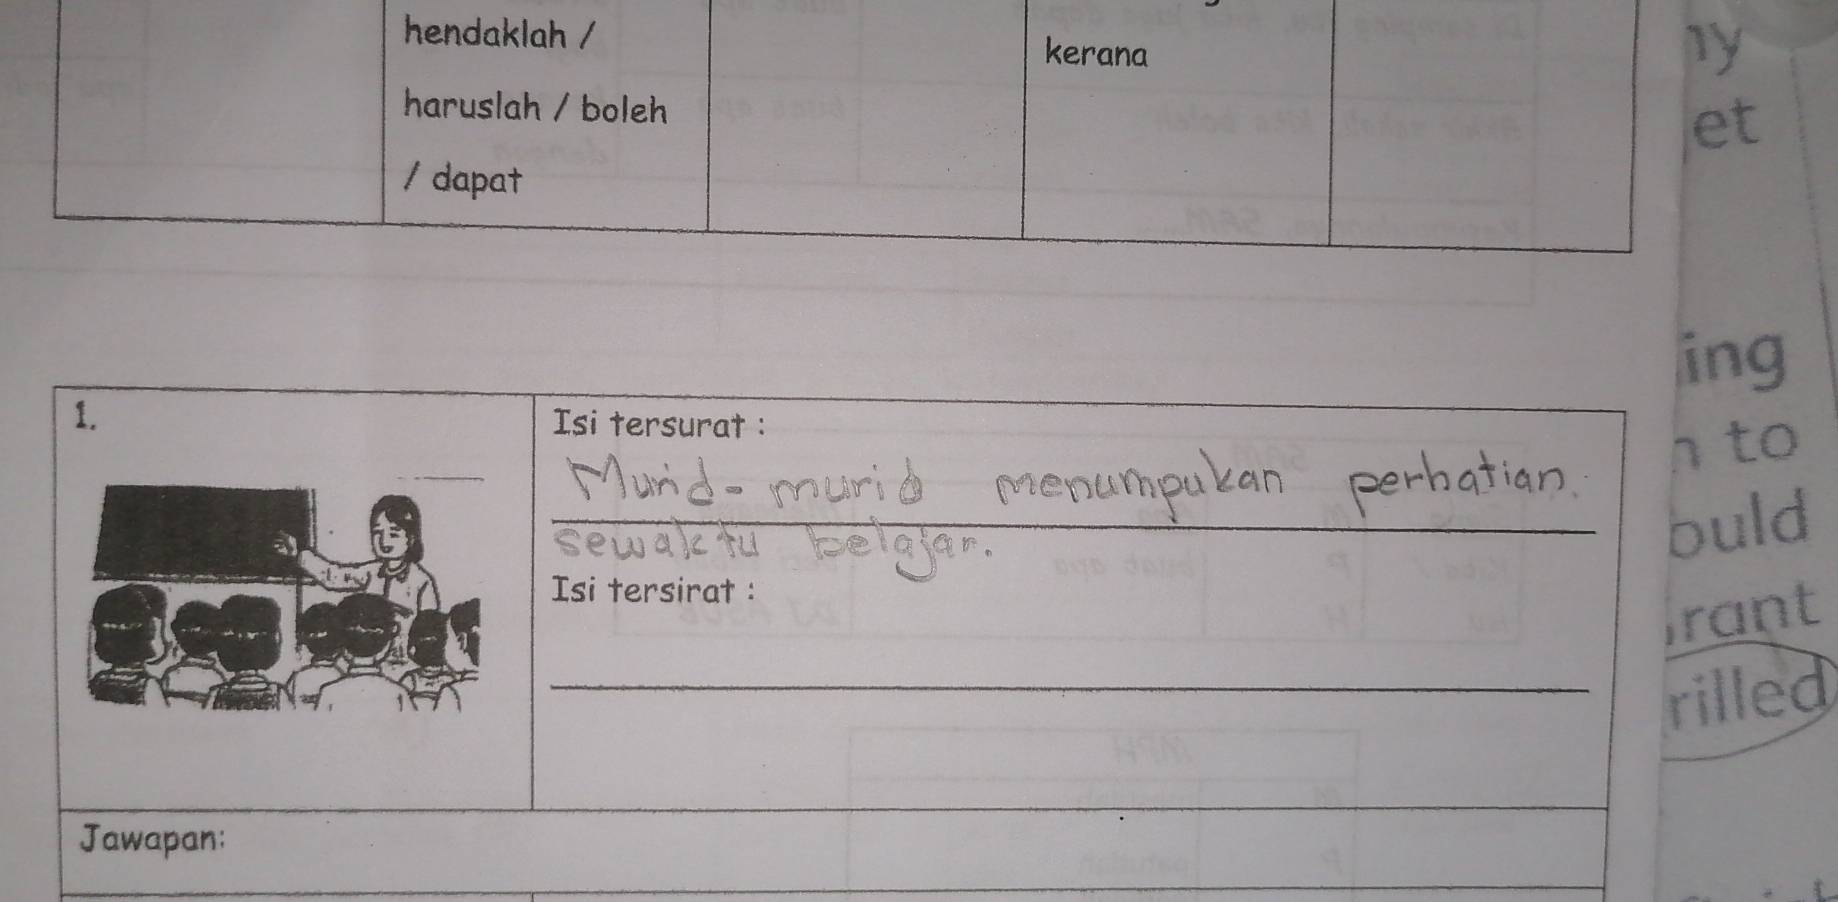 hendaklah /
kerana
haruslah / boleh
/ dapat
1.
Isi tersurat :
Murid-murid menumpukan perhatian.
sewaktu belajar.
Isi tersirat :
Jawapan:
et
ing
to
ould
rant
rilled